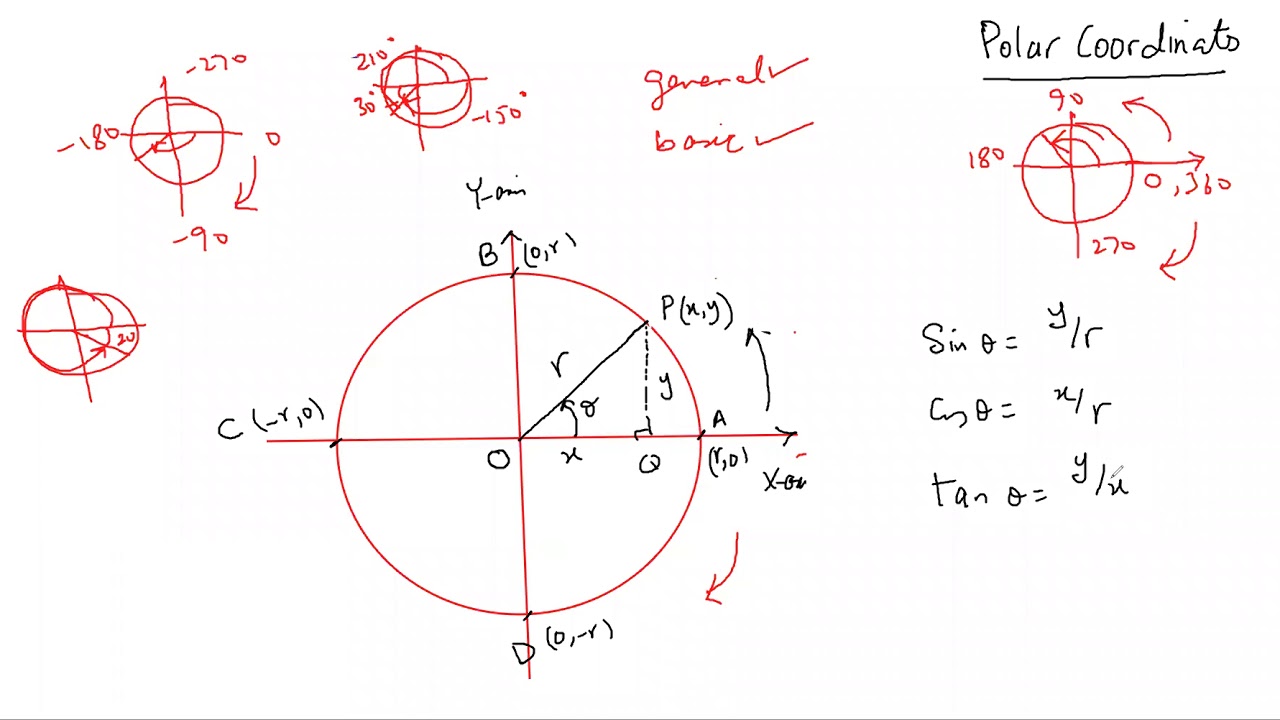 Polar Coordinats
-270
-180
0
-90
210°
30°
-150°
general✓
basic✓
90
180
0,360
270
20
Y-axis
B (0,r)
P(x,y)
r
θ
y
C (-r,0)
A
(r,0)
O
x
Q
X-axis
D (0,-r)
Sin θ = y/r
Cos θ = x/r
tan θ = y/x